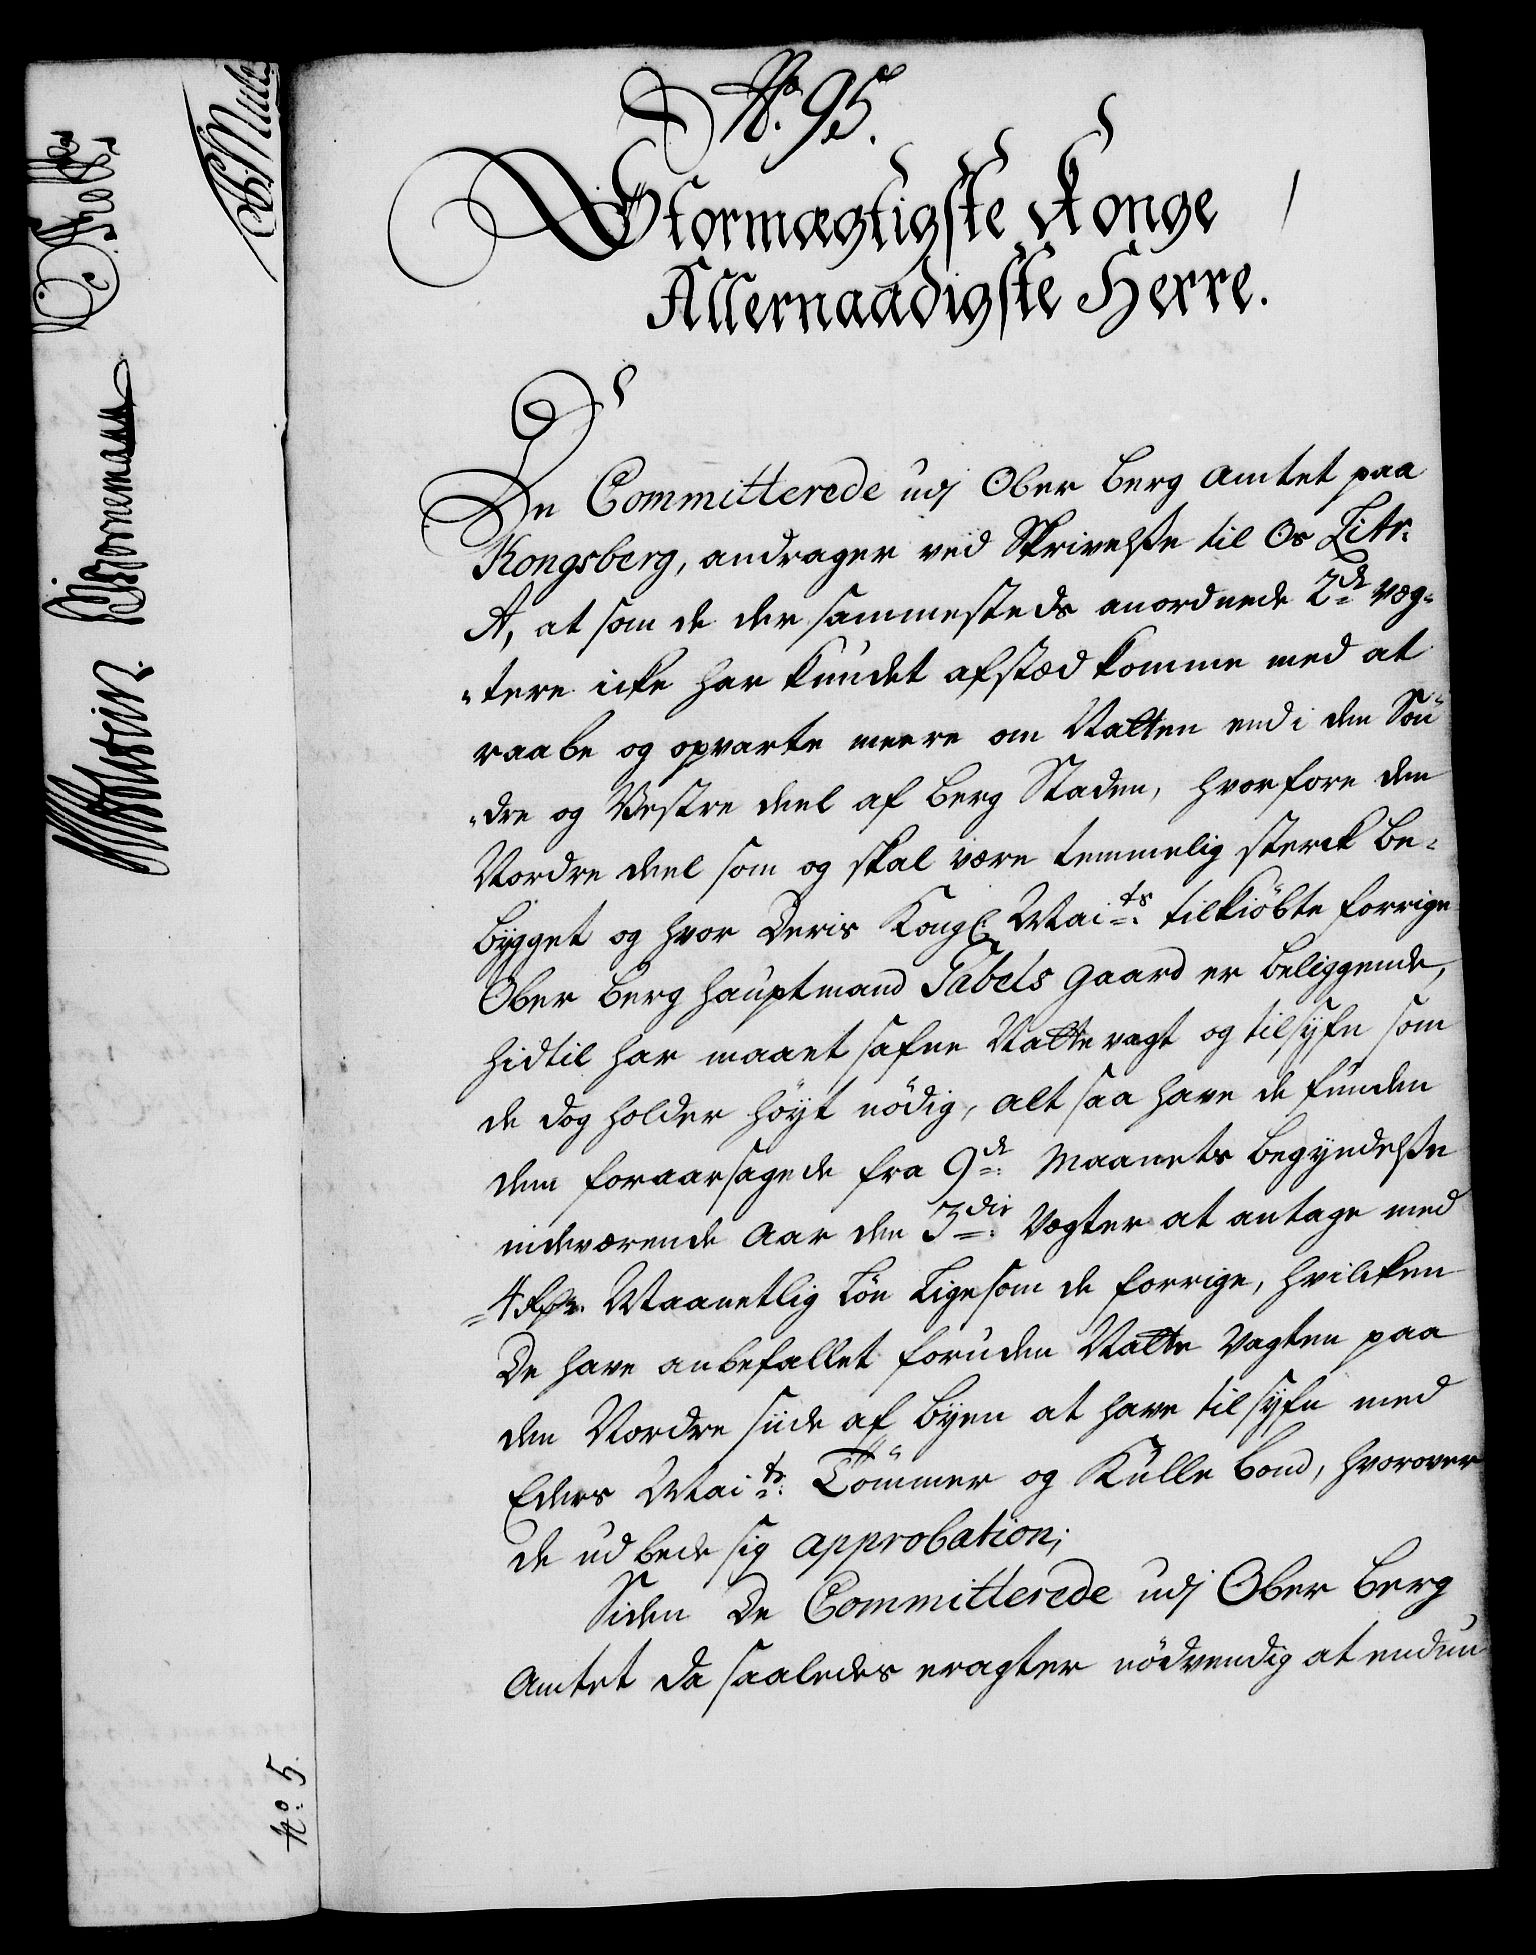 No. 95.
Stormægtigste Konge
Allernaadigste Herre.
De Committerede udj Ober Berg Amtet paa
Kongsberg, andrager ved Skrivelsse til Os Litr.
A, at som de der sammesteds anordnede 2de Væg-
"tere icke har kundet afstæd komme med at
raabe og opvarte meere om Natten end i den Søn
"dre og Vestre deel af Berg Staden, hvorfore den
Nordre deel som og skal være temmelig sterck be-
bÿgget og hvor Deris Kongl. Maits. tilkiöbte forrige
Ober Berg Hauptmand Tabels Gaard er beliggende,
hidtil har maaet safne Natte vagt og tilsÿfn som
de dog holder höÿt nödig, alt saa have de funden
dem foraarsagede fra 9de Maanets Begÿndelsse
indeværende Aar den 3die Vægter at antage med
4 Rdr. Maanetlig Lön Ligesom de forrige, hvilcken
De have anbefallet foruden Natte Vagten paa
den Nordre siide af Bÿen at have tilsÿfn med
Eders Maits. Tömmer og Kulle Bond, hvorover
de udbede sig approbation;
Siden De Committerede udj Ober Berg
Amtet da saaledes eragter nödvendig at endnu
Bornemann
No. 5.